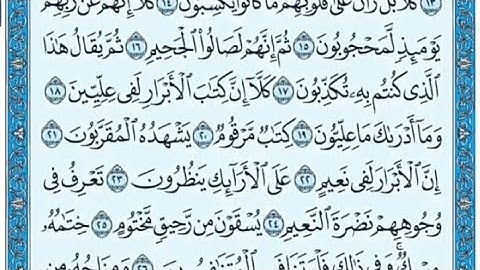 ١٣ كَلَّا بَلْ رَانَ عَلَىٰ قُلُوبِهِم مَّا كَانُوا۟ يَكْسِبُونَ ١٤ كَلَّآ إِنَّهُمْ عَن رَّبِّهِمْ
يَوْمَئِذٍ لَّمَحْجُوبُونَ ١٥ ثُمَّ إِنَّهُمْ لَصَالُوا۟ ٱلْجَحِيمِ ١٦ ثُمَّ يُقَالُ هَٰذَا
ٱلَّذِى كُنتُم بِهِۦ تُكَذِّبُونَ ١٧ كَلَّآ إِنَّ كِتَٰبَ ٱلْأَبْرَارِ لَفِى عِلِّيِّينَ ١٨
وَمَآ أَدْرَىٰكَ مَا عِلِّيُّونَ ١٩ كِتَٰبٌ مَّرْقُومٌ ٢٠ يَشْهَدُهُ ٱلْمُقَرَّبُونَ ٢١
إِنَّ ٱلْأَبْرَارَ لَفِى نَعِيمٍ ٢٢ عَلَى ٱلْأَرَآئِكِ يَنظُرُونَ ٢٣ تَعْرِفُ فِى
وُجُوهِهِمْ نَضْرَةَ ٱلنَّعِيمِ ٢٤ يُسْقَوْنَ مِن رَّحِيقٍ مَّخْتُومٍ ٢٥ خِتَٰمُهُۥ
مِسْكٌ وَفِى ذَٰلِكَ فَلْيَتَنَافَسِ ٱلْمُتَنَٰفِسُونَ ٢٦ وَمِزَاجُهُۥ مِن